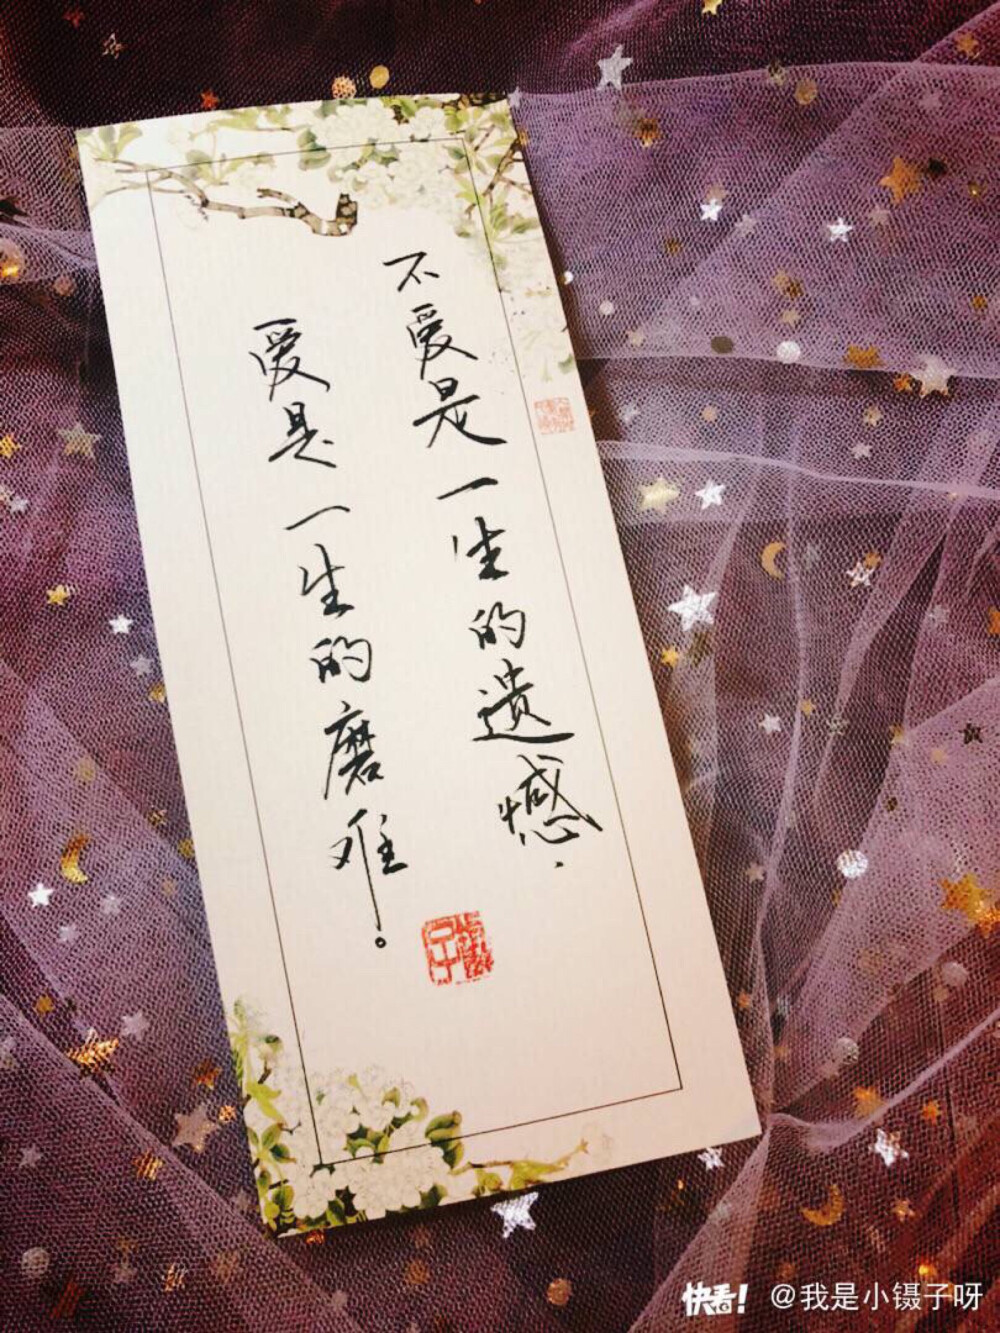 不爱是一生的遗憾.
爱是一生的磨难。
快看!
@我是小镊子呀